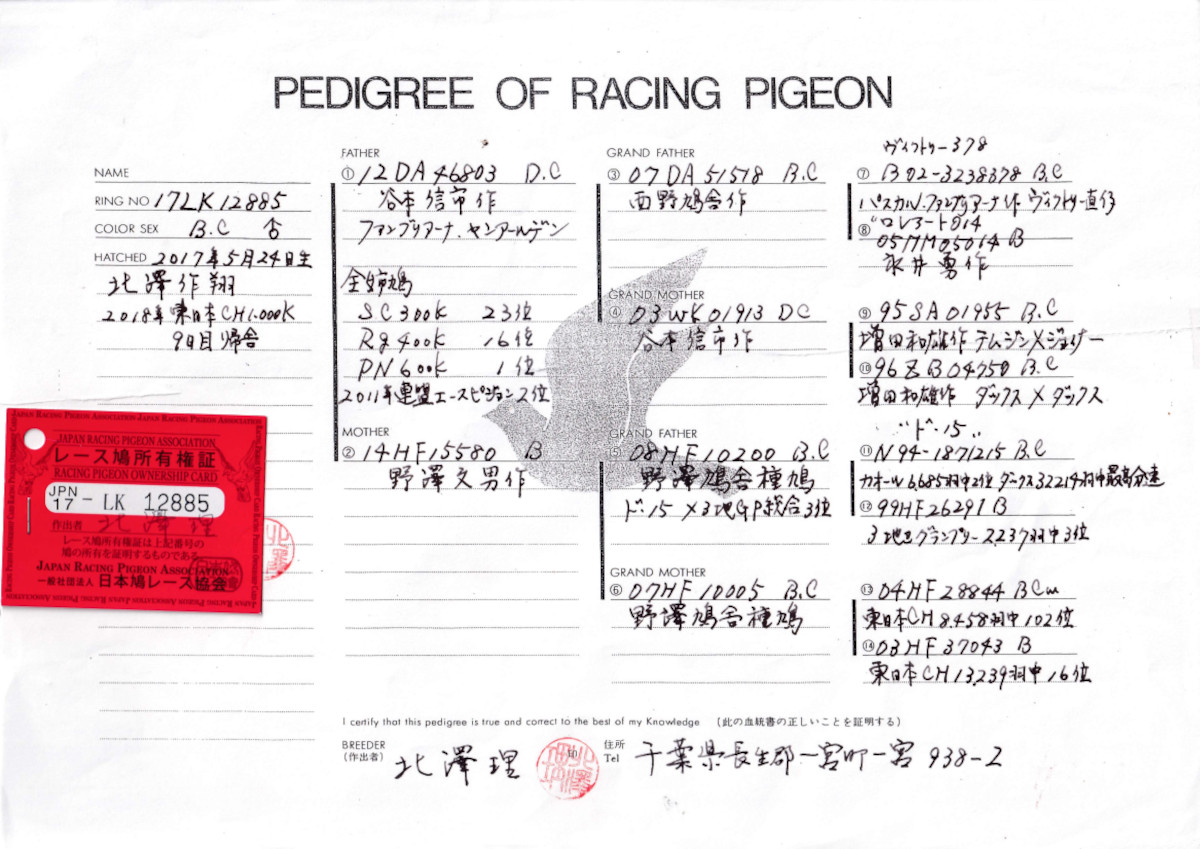 PEDIGREE OF RACING PIGEON
NAME
RING NO 17LK12885
COLOR SEX B.C 合
HATCHED 2017年5月24日生
北澤作翔
2018年東日本CH1.000K
9日目帰舎
JAPAN RACING PIGEON ASSOCIATION
レース鳩所有権証
RACING PIGEON OWNERSHIP CARD
JPN
17 - LK 12885
作出者 北澤 理
レース鳩所有権証は上記番号の
鳩の所有を証明するものである
JAPAN RACING PIGEON ASSOCIATION
一般社団法人 日本鳩レース協会
FATHER
① 12DA46803 D.C
谷本信市作
ファンブリアーナ.ヤンアールデン
全姉鳩
SC300K 23位
Rg400K 16位
PN600K 1位
2011年連盟エースピジョン2位
MOTHER
② 14HF15580 B
野澤文男作
GRAND FATHER
③ 07DA51518 B.C
西野鳩舎作
GRAND MOTHER
④ 03WK01913 DC
谷本信市作
GRAND FATHER
⑤ 08HF10200 B.C
野澤鳩舎種鳩
ド.15×3地GP総合3位
GRAND MOTHER
⑥ 07HF10005 B.C
野澤鳩舎種鳩
ヴィクトリー378
⑦ B02-3238378 B.C
パスカルV.ファンブリアーナ作 ヴィクトリー直仔
⑧ 05MM05014 B
永井勇作
⑨ 95SA01955 B.C
増田和雄作 テムジン×ジェイナー
⑩ 96ZB04750 B.C
増田和雄作 ダックス×ダックス
"ド.15"
⑪ N94-1871215 B.C
カオール6685羽中2位 ダックス32214羽中最高分速
⑫ 99HF26291 B
3地区グランプリー2237羽中3位
⑬ 04HF28844 BCw
東日本CH8.458羽中102位
⑭ 03HF37043 B
東日本CH13,239羽中16位
I certify that this pedigree is true and correct to the best of my Knowledge (此の血統書の正しいことを証明する)
BREEDER
(作出者) 北澤 理 印
住所
Tel 千葉県長生郡一宮町一宮 938-2